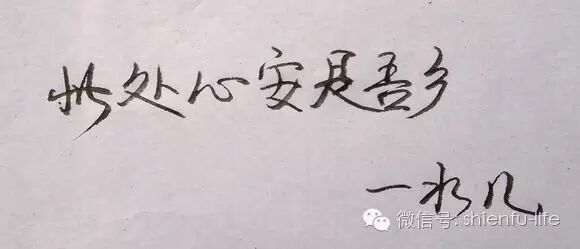 此处心安是吾乡
一水几
微信号: shienfu-life